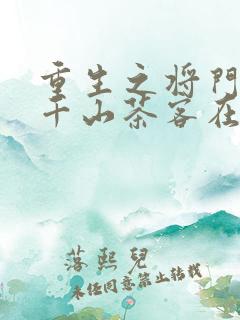 重生之将門
千山茶客在
落熙兒
未經同意禁止转載